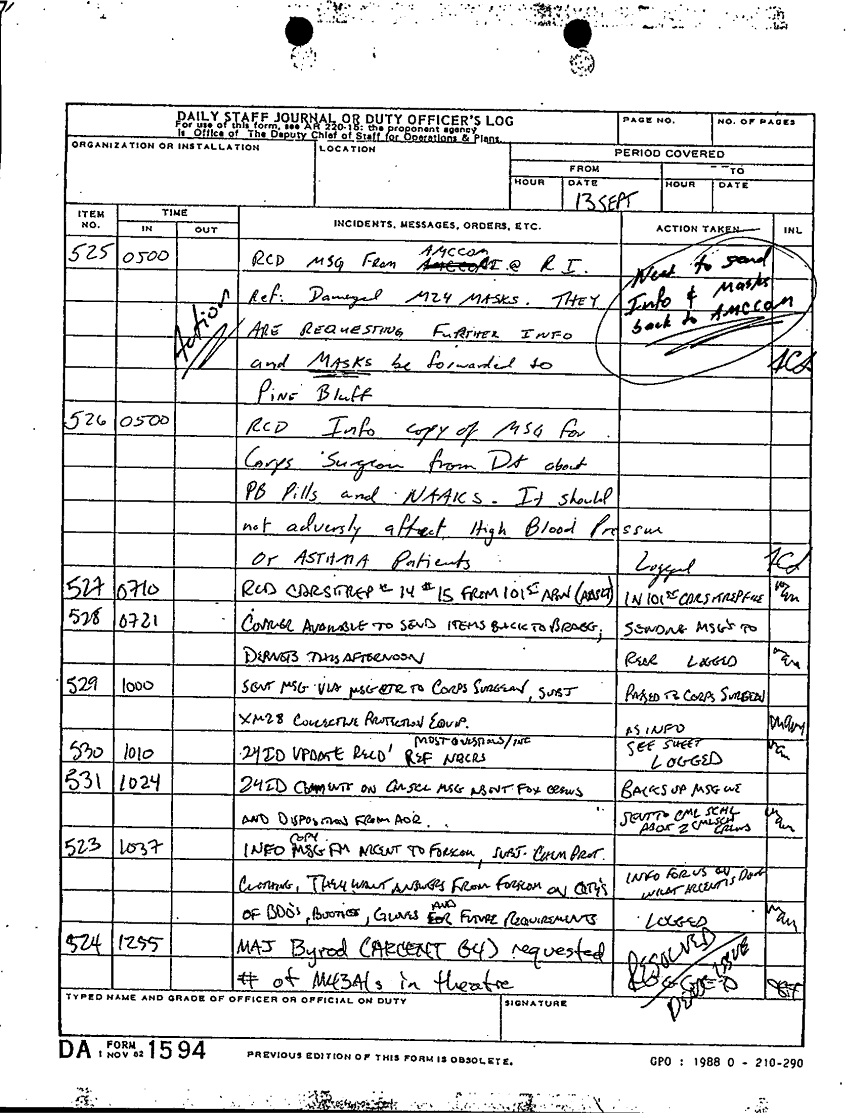 DAILY STAFF JOURNAL OR DUTY OFFICER'S LOG
For use of this form, see AR 220-15; the proponent agency
is Office of The Deputy Chief of Staff for Operations & Plans.
PAGE NO.
NO. OF PAGES
ORGANIZATION OR INSTALLATION
LOCATION
PERIOD COVERED
FROM
TO
HOUR
DATE
13 SEPT
HOUR
DATE
ITEM NO.
TIME
IN
OUT
INCIDENTS, MESSAGES, ORDERS, ETC.
ACTION TAKEN
INL
525 0500 RCD MSG From AMCCOM @ R I.
Ref: Damaged M24 MASKS. THEY
ARE REQUESTING FURTHER INFO
and MASKS be forwarded to
PINE Bluff
Action
Need to send
Info & Masks
back to AMCCOM
526 0500 RCD Info copy of MSG for
Corps Surgeon from DA about
PB Pills and NAAKS. It should
not adversly affect High Blood Pressure
or ASTHMA Patients Logged
527 0710 RCD CDRSITREP # 14 # 15 FROM 101ST ABN (AASLT) IN 101ST CDRSITREP FILE
528 0721 COURIER AVAILABLE TO SEND ITEMS BACK TO BRAGG, SENDING MSG'S TO
DEPARTS THIS AFTERNOON REAR LOGGED
529 1000 SENT MSG VIA MSG CTR TO CORPS SURGEON, SUBJ PASSED TO CORPS SURGEON
XM28 COLLECTIVE PROTECTION EQUIP. AS INFO
530 1010 24ID UPDATE RECD' REF NBCRS SEE SHEET
LOGGED
531 1024 24ID COMMENTS ON CMLSCL MSG ABOUT FOX CREWS BACKS UP MSG WE
AND DISPOSITION FROM AOR. SENT TO CML SCHL
ABOUT 2 CREWS
523 1037 INFO COPY MSG FM ARCENT TO FORSCOM, SUBJ. CHEM PROT.
CLOTHING, THEY WANT ANSWERS FROM FORSCOM ON QTY'S INFO FOR US ON
WHAT ARCENT IS DOING
OF BDO'S, BOOTIES, GLOVES AND FOR FUTURE REQUIREMENTS LOGGED
524 1255 MAJ Byrod (ARCENT G4) requested
# of M43A1s in theatre
RESOLVED
LOGGED
ISSUE
TYPED NAME AND GRADE OF OFFICER OR OFFICIAL ON DUTY
SIGNATURE
DA FORM 1 NOV 62 1594
PREVIOUS EDITION OF THIS FORM IS OBSOLETE.
GPO : 1988 O - 210-290